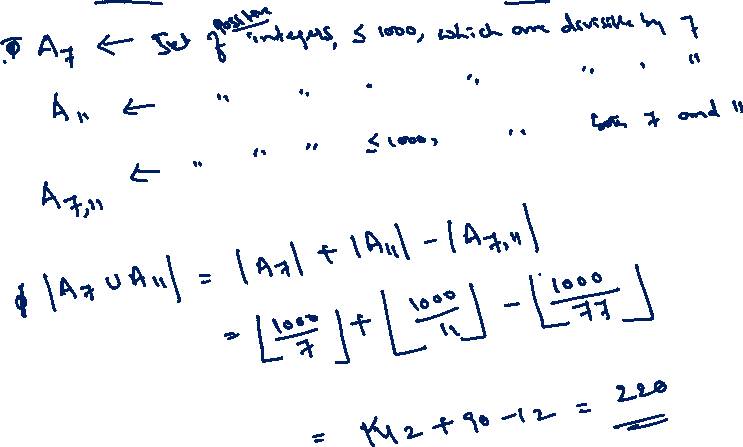 A₇ ← Set of positive integers, ≤ 1000, which are divisible by 7
A₁₁ ← " " " " " " 11
A₇,₁₁ ← " " " ≤ 1000, " both 7 and 11
|A₇ ∪ A₁₁| = |A₇| + |A₁₁| - |A₇,₁₁|
= ⌊1000/7⌋ + ⌊1000/11⌋ - ⌊1000/77⌋
= 142 + 90 - 12 = 220